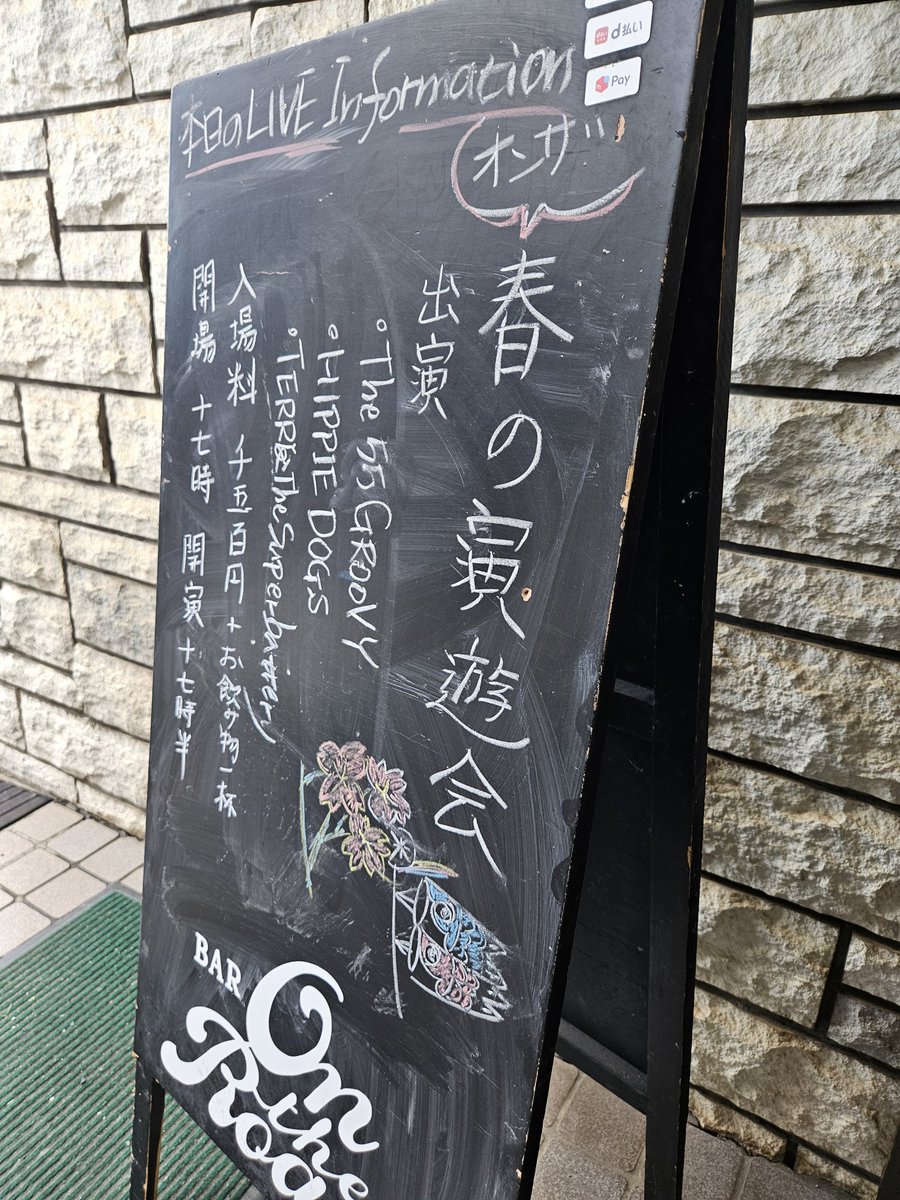 d払い
Pay
本日のLIVE Information
オンザ
春の演遊会
出演
• The 55 GROOVY
• HIPPIE DOGS
入場料 千五百円+お飲み物一杯
開場 十七時 開演十七時半
BAR
On the